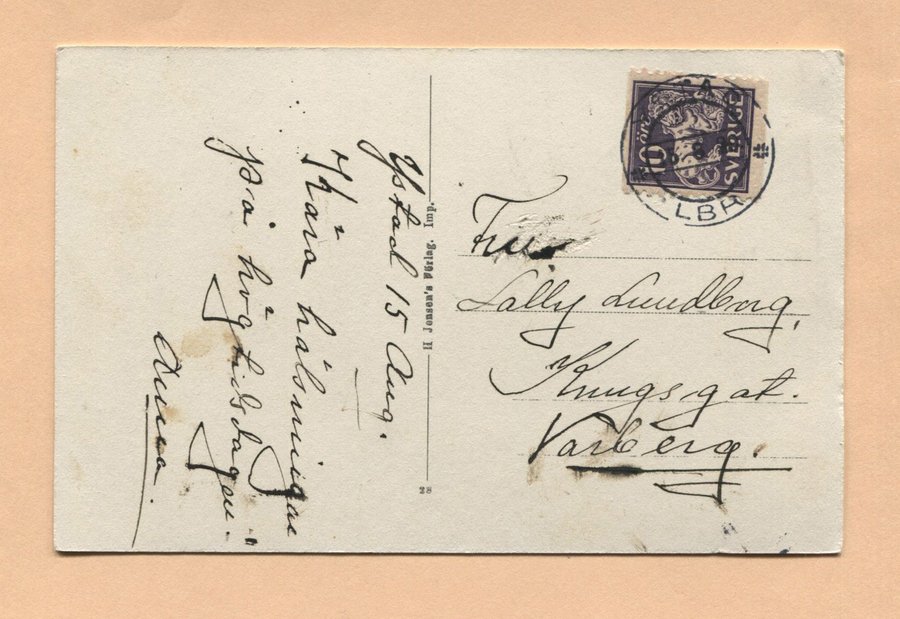 Ystad 15 Aug.
Kära hälsningar
på högtidsdagen.
Anna.
H Jensen's Förlag. Imp.
28
10 öre
SVERIGE
LBR
Fru
Sally Lundborg,
Kungsgat.
Varberg.